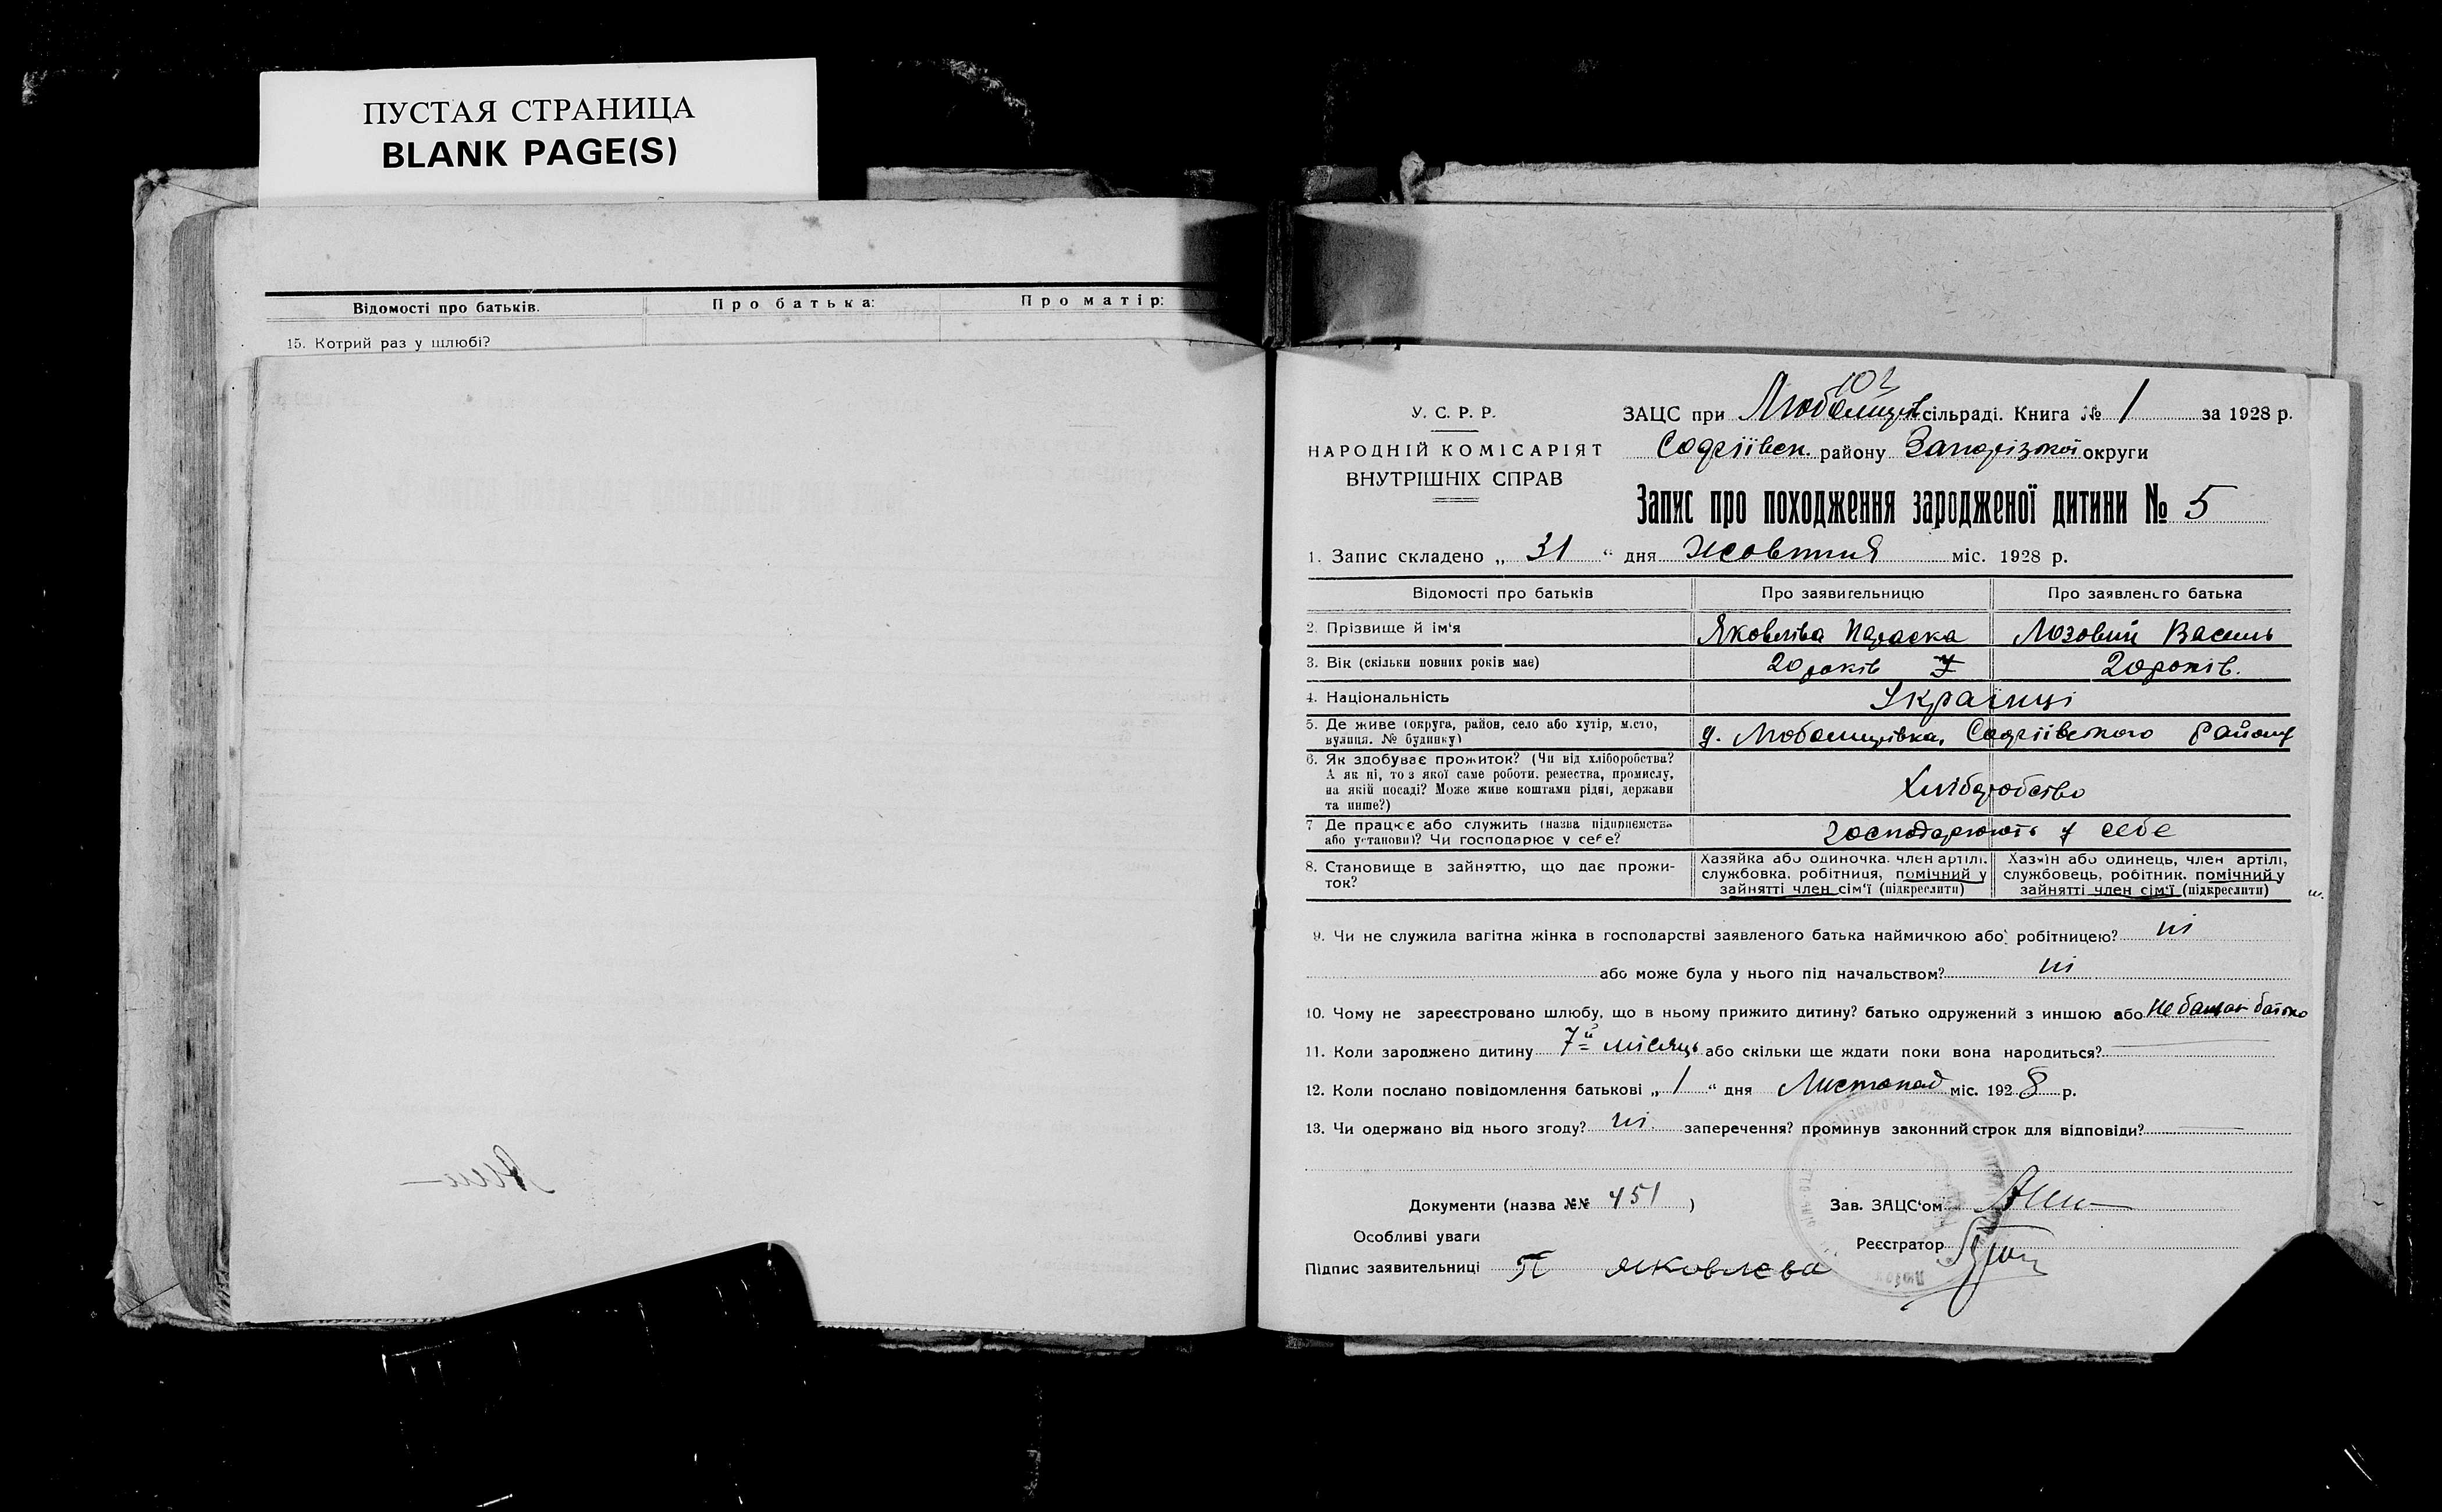 ПУСТАЯ СТРАНИЦА
BLANK PAGE(S)
Відомості про батьків.
Про батька:
Про матір:
15. Котрий раз у шлюбі?
102
У. С. Р. Р.
НАРОДНІЙ КОМІСАРІЯТ
ВНУТРІШНІХ СПРАВ
ЗАЦС при сільраді. Книга № 1 за 1928 р.
Софіївськ. району Запорізької округи
Запис про походження зародженої дитини № 5
1. Запис складено „ 31 “ дня жовтня міс. 1928 р.
Відомості про батьків Про заявительницю Про заявленого батька
2. Прізвище й ім‘я Яковліва Параска Лозовий Василь
3. Вік (скільки повних років має) 20 років 20 років.
4. Національність Українці
5. Де живе (округа, район, село або хутір, місто,
вулиця. № будинку) Софіївського району
6. Як здобуває прожиток? (Чи від хліборобства?
А як ні, то з якої саме роботи. ремества, промислу,
на якій посаді? Може живе коштами рідні, держави
та инше?) Хліборобство
7 Де працює або служить (назва підприємства
або установи)? Чи господарює у себе? господарюють у себе
8. Становище в зайняттю, що дає прожи-
ток?
Хазяйка або одиночка. член артілі.
службовка. робітниця, помічний у
зайнятті член сім‘ї (підкреслити)
Хазяїн або одинець, член артілі,
службовець, робітник. помічний у
зайнятті член сім‘ї (підкреслити)
9. Чи не служила вагітна жінка в господарстві заявленого батька наймичкою або робітницею? ні
або може була у нього під начальством? ні
10. Чому не зареєстровано шлюбу, що в ньому прижито дитину? батько одружений з иншою або не бажає батько
11. Коли зароджено дитину 7й місяць або скільки ще ждати поки вона народиться?
12. Коли послано повідомлення батькові „ 1 “ дня Листопад міс. 1928 р.
13. Чи одержано від нього згоду? ні. заперечення? проминув законний строк для відповіди?
Документи (назва №№ 451 )
Зав. ЗАЦС‘ом
Особливі уваги
Реєстратор
Підпис заявительниці П Яковлева